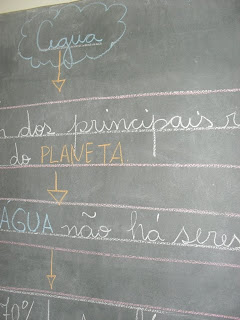 Água
dos principais
do PLANETA
ÁGUA não há seres
70%